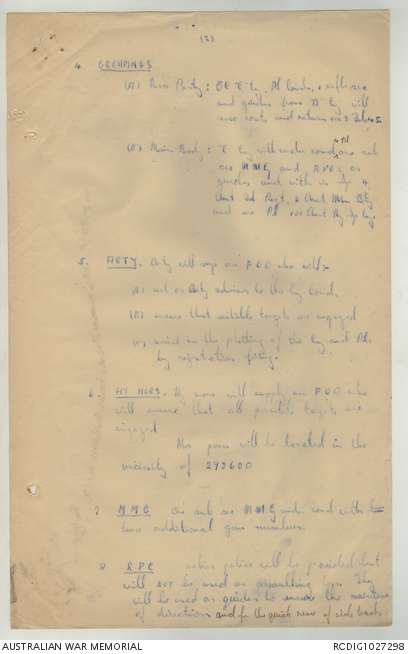 (2)
4 GROUPINGS
(A) Recce Party: OC "E" Coy, Pl Comdrs,
and guides from "D" Coy will
recce route and return on
(B) Main Body: "E" Coy will under comd,
4 Pl
one MMG and RPC, as
guides and with in sp 4
Aust Fd Regt, 2 Aust Mtn Bty
and one Pl 101 Aust Hy Coy.
5. ARTY. Arty will sup one F.O.O who will
(A) act as Arty adviser to the Coy Comd
(B) ensure that suitable targets are engaged
(C) assist in the plotting of the Coy and Pls
by registration firing.
6. HY MORS. Hy mors will supply one F.O.O who
will ensure that all possible targets are
engaged
Mor posns will be located in the
vicinity of 293600
7 M.M.G One sub sec M.M.G under comd with
two additional gun numbers.
8 R.P.C native police will be provided but
will NOT be used as assaulting tps. They
will be used as guides to ensure the
of direction and for the quick recce of side tracks
AUSTRALIAN WAR MEMORIAL
RCDIG1027298